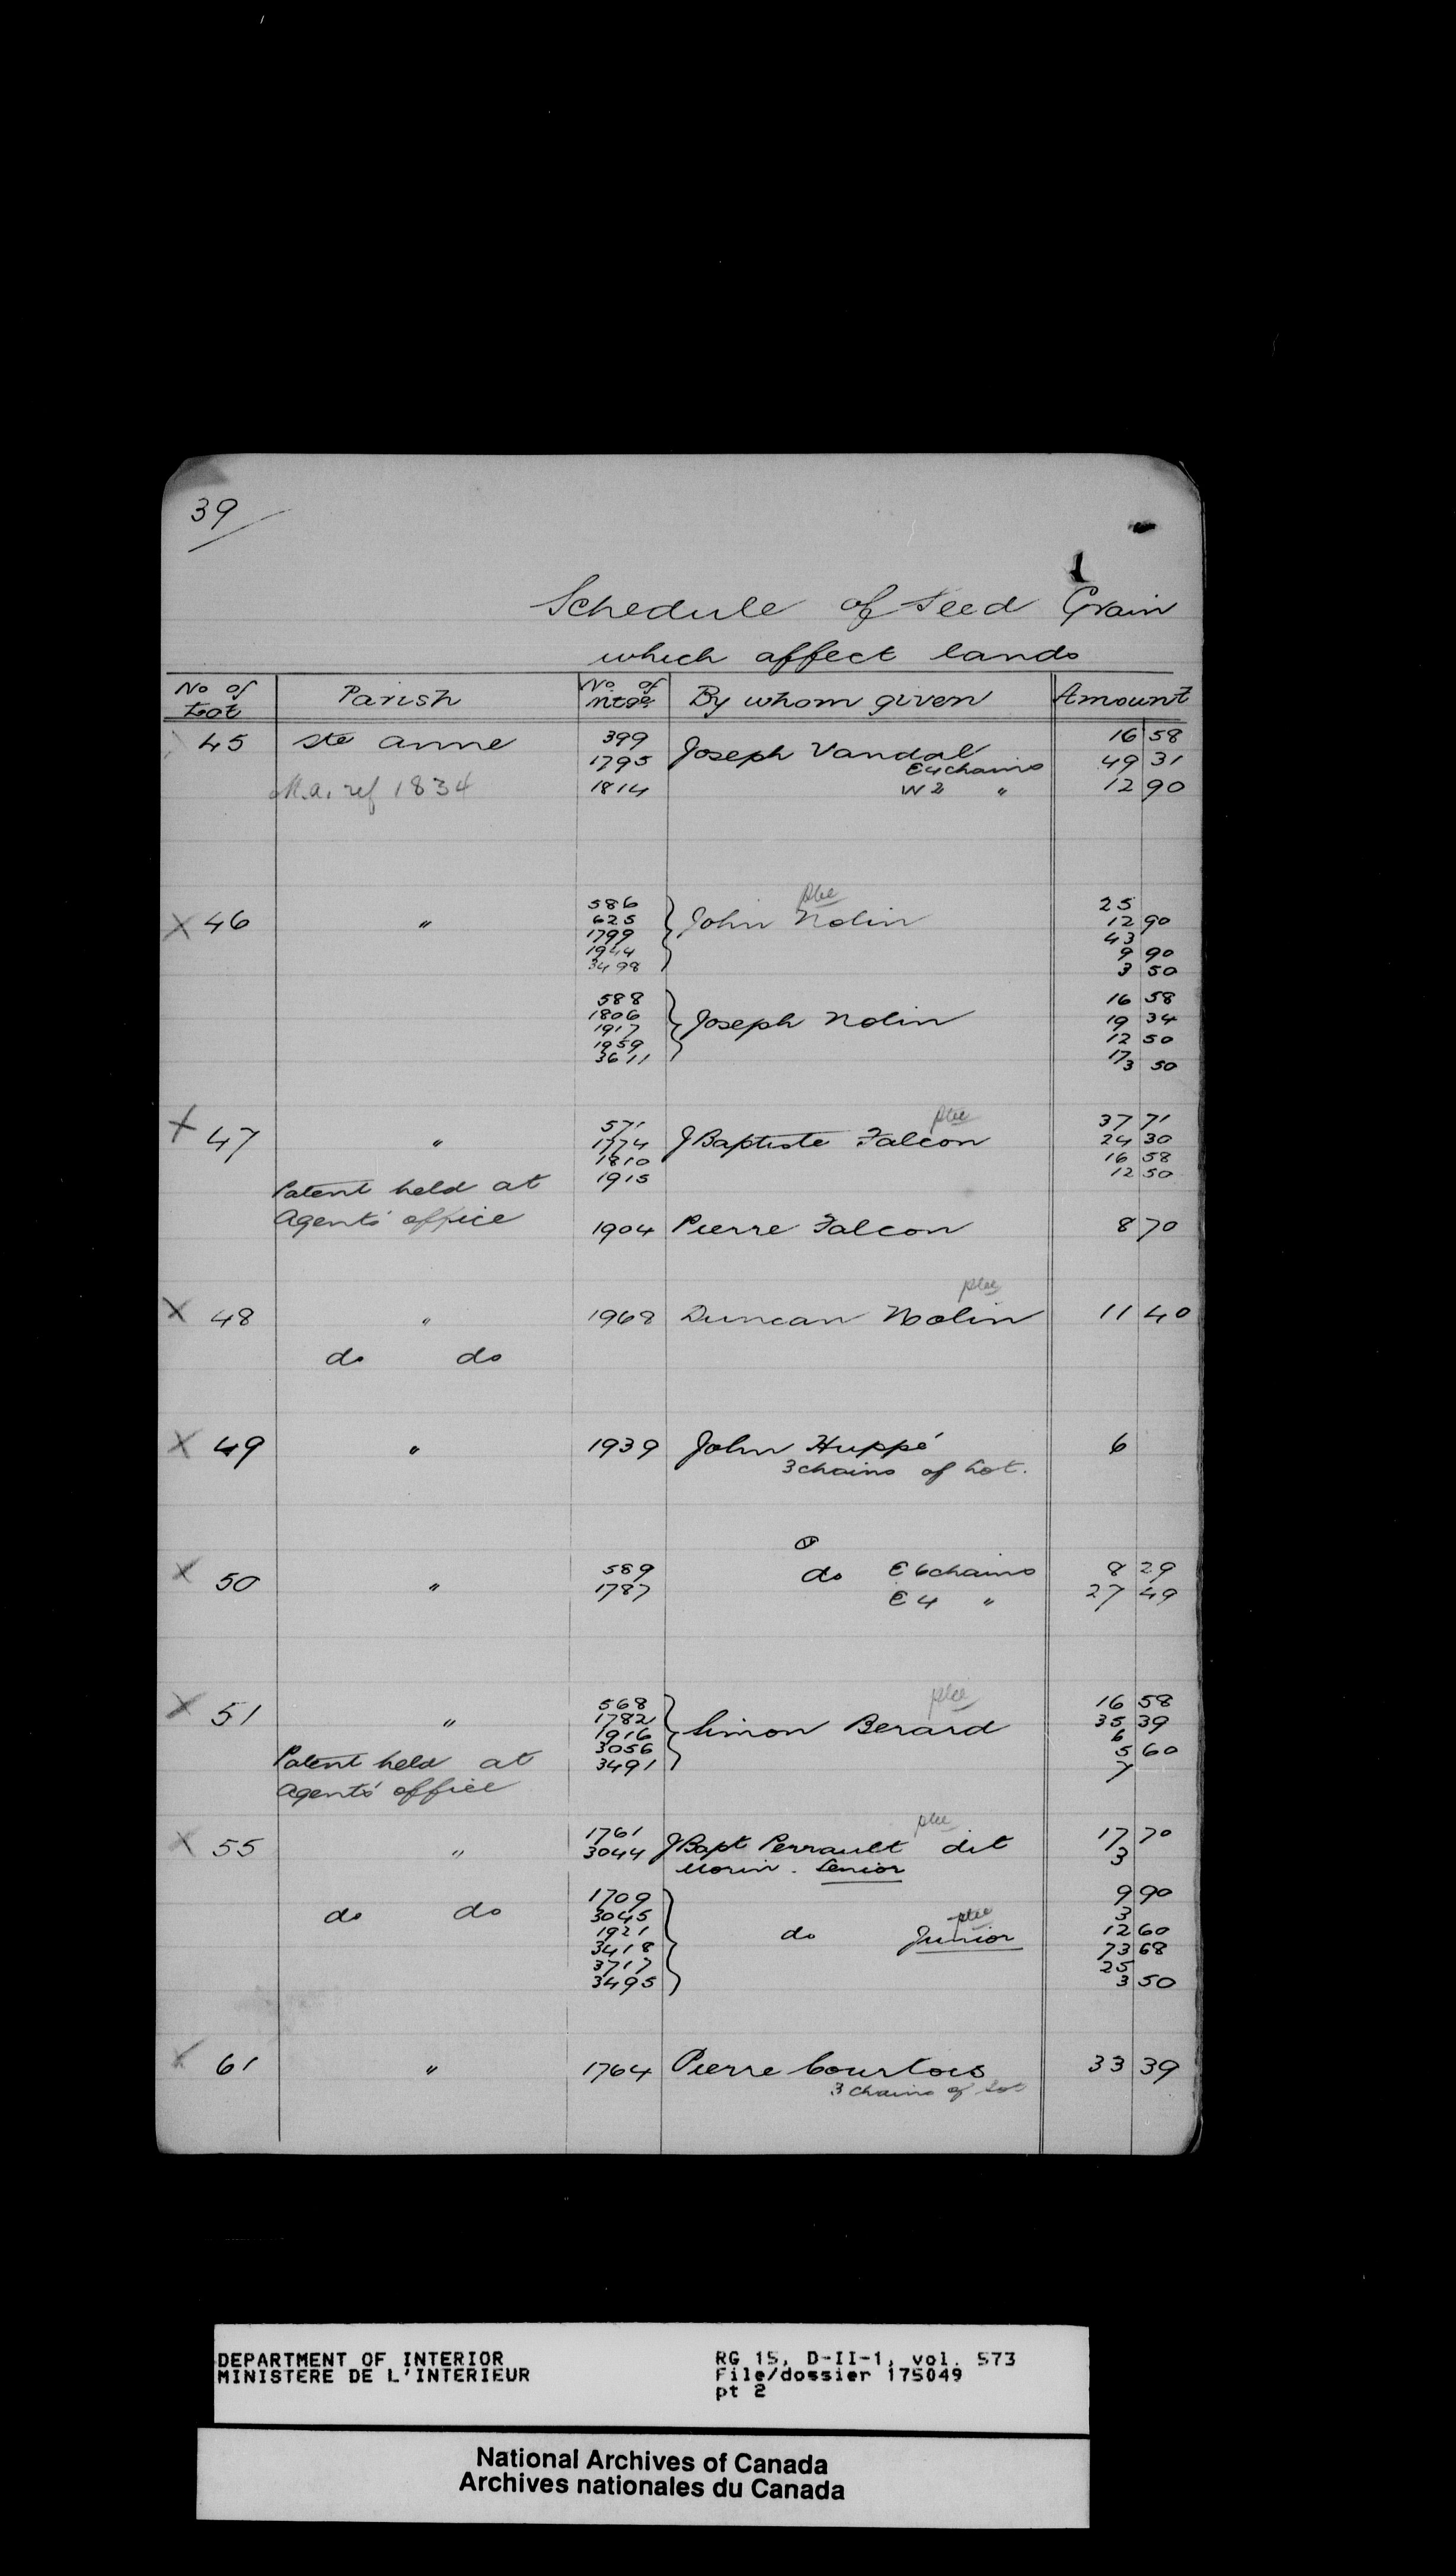 39
1
Schedule of Seed Grain
which affect lands
No of Lot Parish No of Mtge By whom given Amount
45 Ste Anne 399 Joseph Vandal 16 58
1795 E4 chains 49 31
M.a. ref 1834 1814 W2 " 12 90
586 25
X 46 " 625 John Nolin 12 90
1799 43
1944 9 90
3498 3 50
588 16 58
1806 Joseph Nolin 19 34
1917 12 50
1959 17
3611 3 50
571 37 71
X 47 " 1774 J Baptiste Falcon 24 30
1810 16 58
Patent held at 1915 12 50
Agents' office 1904 Pierre Falcon 8 70
X 48 " 1968 Duncan Nolin 11 40
do do
X 49 " 1939 John Huppé 6
3 chains of Lot.
X 50 " 589 do E 6 chains 8 29
1787 E 4 " 27 49
568 16 58
X 51 " 1782 Simon Berard 35 39
1916 6
3056 5 60
Patent held at 3491 7
Agents' office
1761 17 70
X 55 " 3044 J Bapt Perrault dit 3
Morin. Senior
1709 9 90
do do 3045 3
1921 do Junior 12 60
3418 73 68
3717 25
3495 3 50
X 61 " 1764 Pierre Courtois 33 39
3 chains of Lot
DEPARTMENT OF INTERIOR RG 15, D-II-1, vol. 573
MINISTERE DE L'INTERIEUR File/dossier 175049
pt 2
National Archives of Canada
Archives nationales du Canada